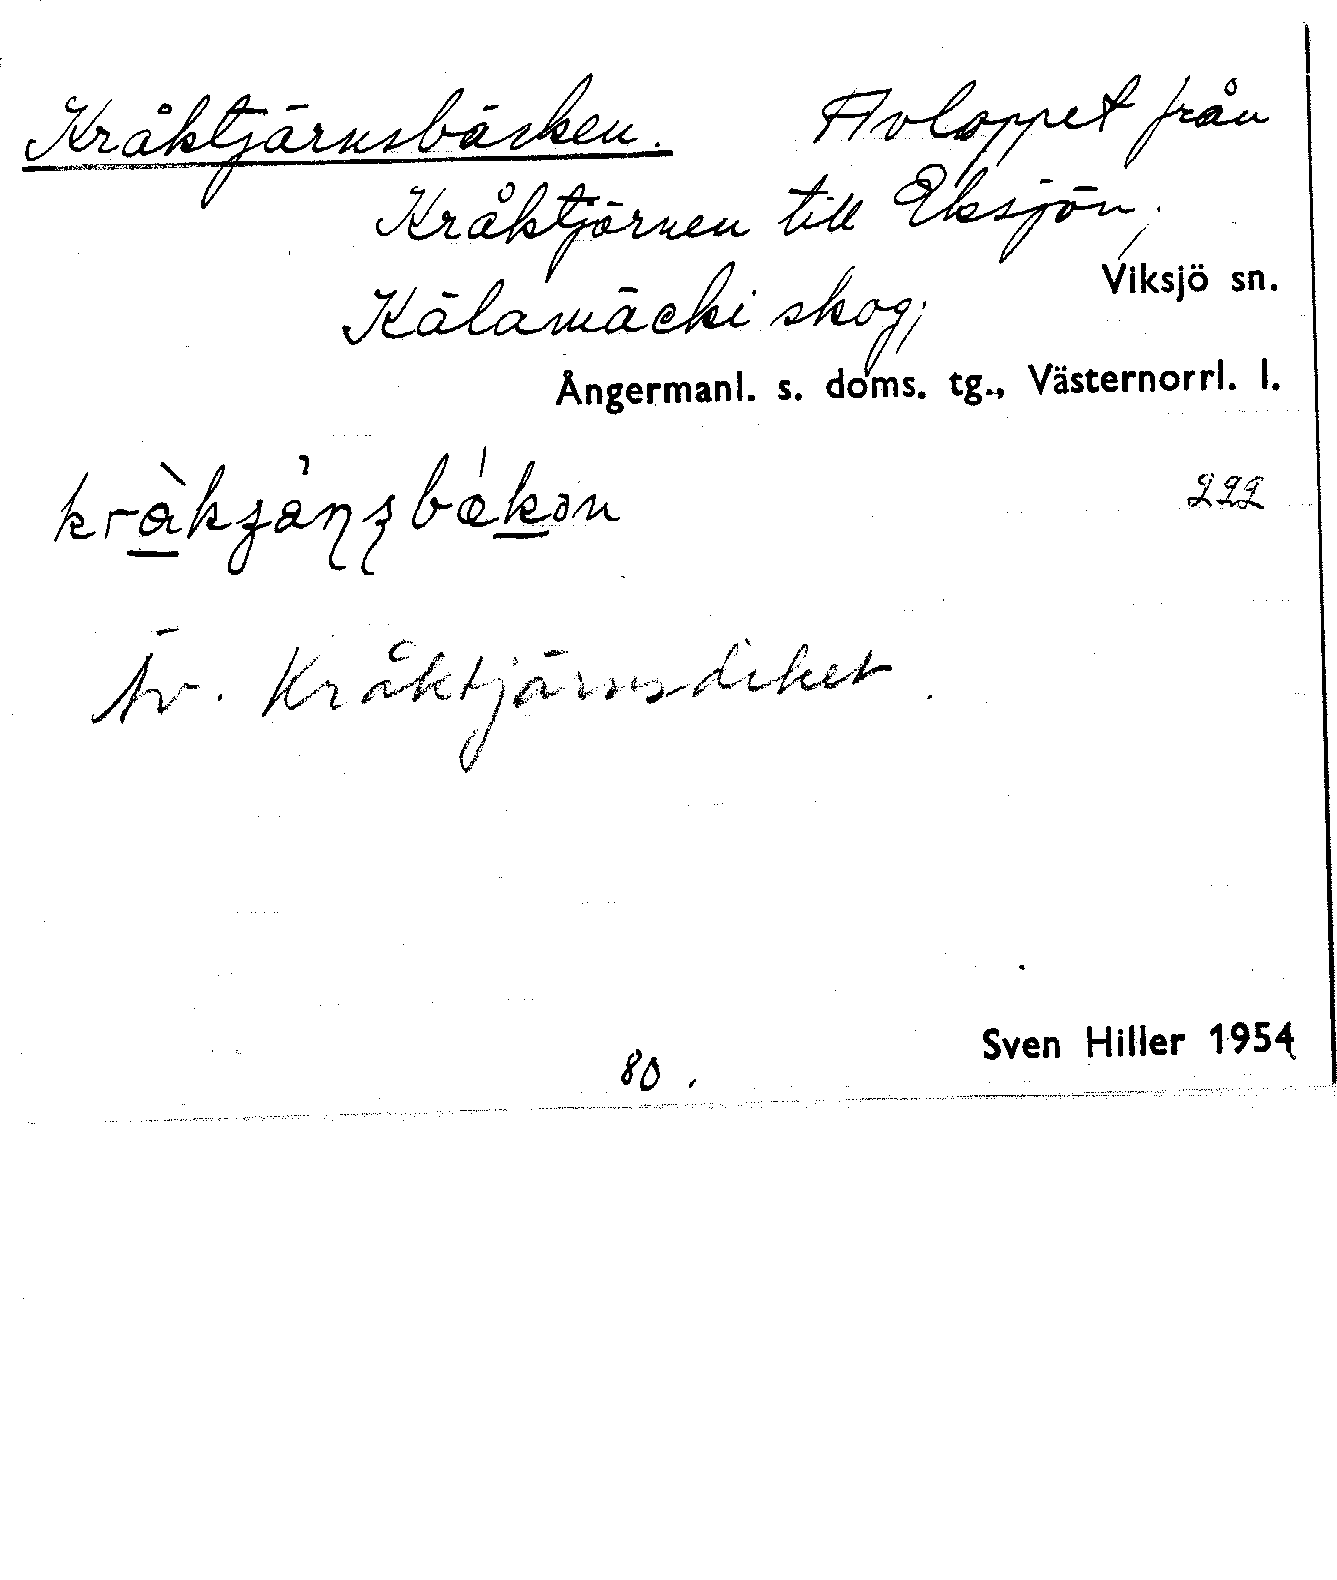 Kråktjärnsbäcken. Avloppet från
Kråktjärnen till Eksjön,
Viksjö sn.
Kälamäcki skog;
Ångermanl. s. doms. tg., Västernorrl. l.
222
Äv. Kråktjärnsdiket.
80.
Sven Hiller 1954